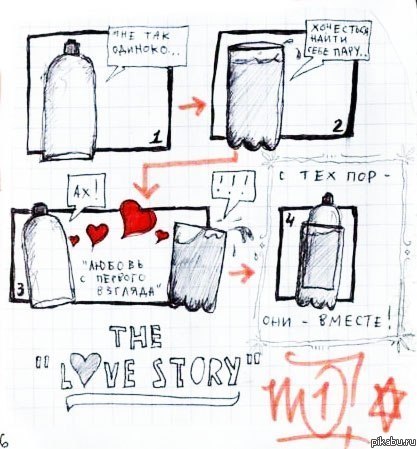 МНЕ ТАК
ОДИНОКО...
1
ХОЧЕТЬСЯ
НАЙТИ
СЕБЕ ПАРУ...
2
АХ!
"ЛЮБОВЬ
С ПЕРВОГО
ВЗГЛЯДА"
3
!!!
С ТЕХ ПОР -
4
ОНИ - ВМЕСТЕ!
THE
"LOVE STORY"
6
pikabu.ru